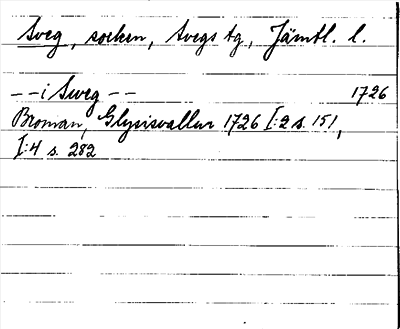 Sveg, socken, Svegs tg, Jämtl. l.
--i Sweg -- 1726
Broman, Glysisvallur 1726 I:2 s. 151,
I:4 s. 282